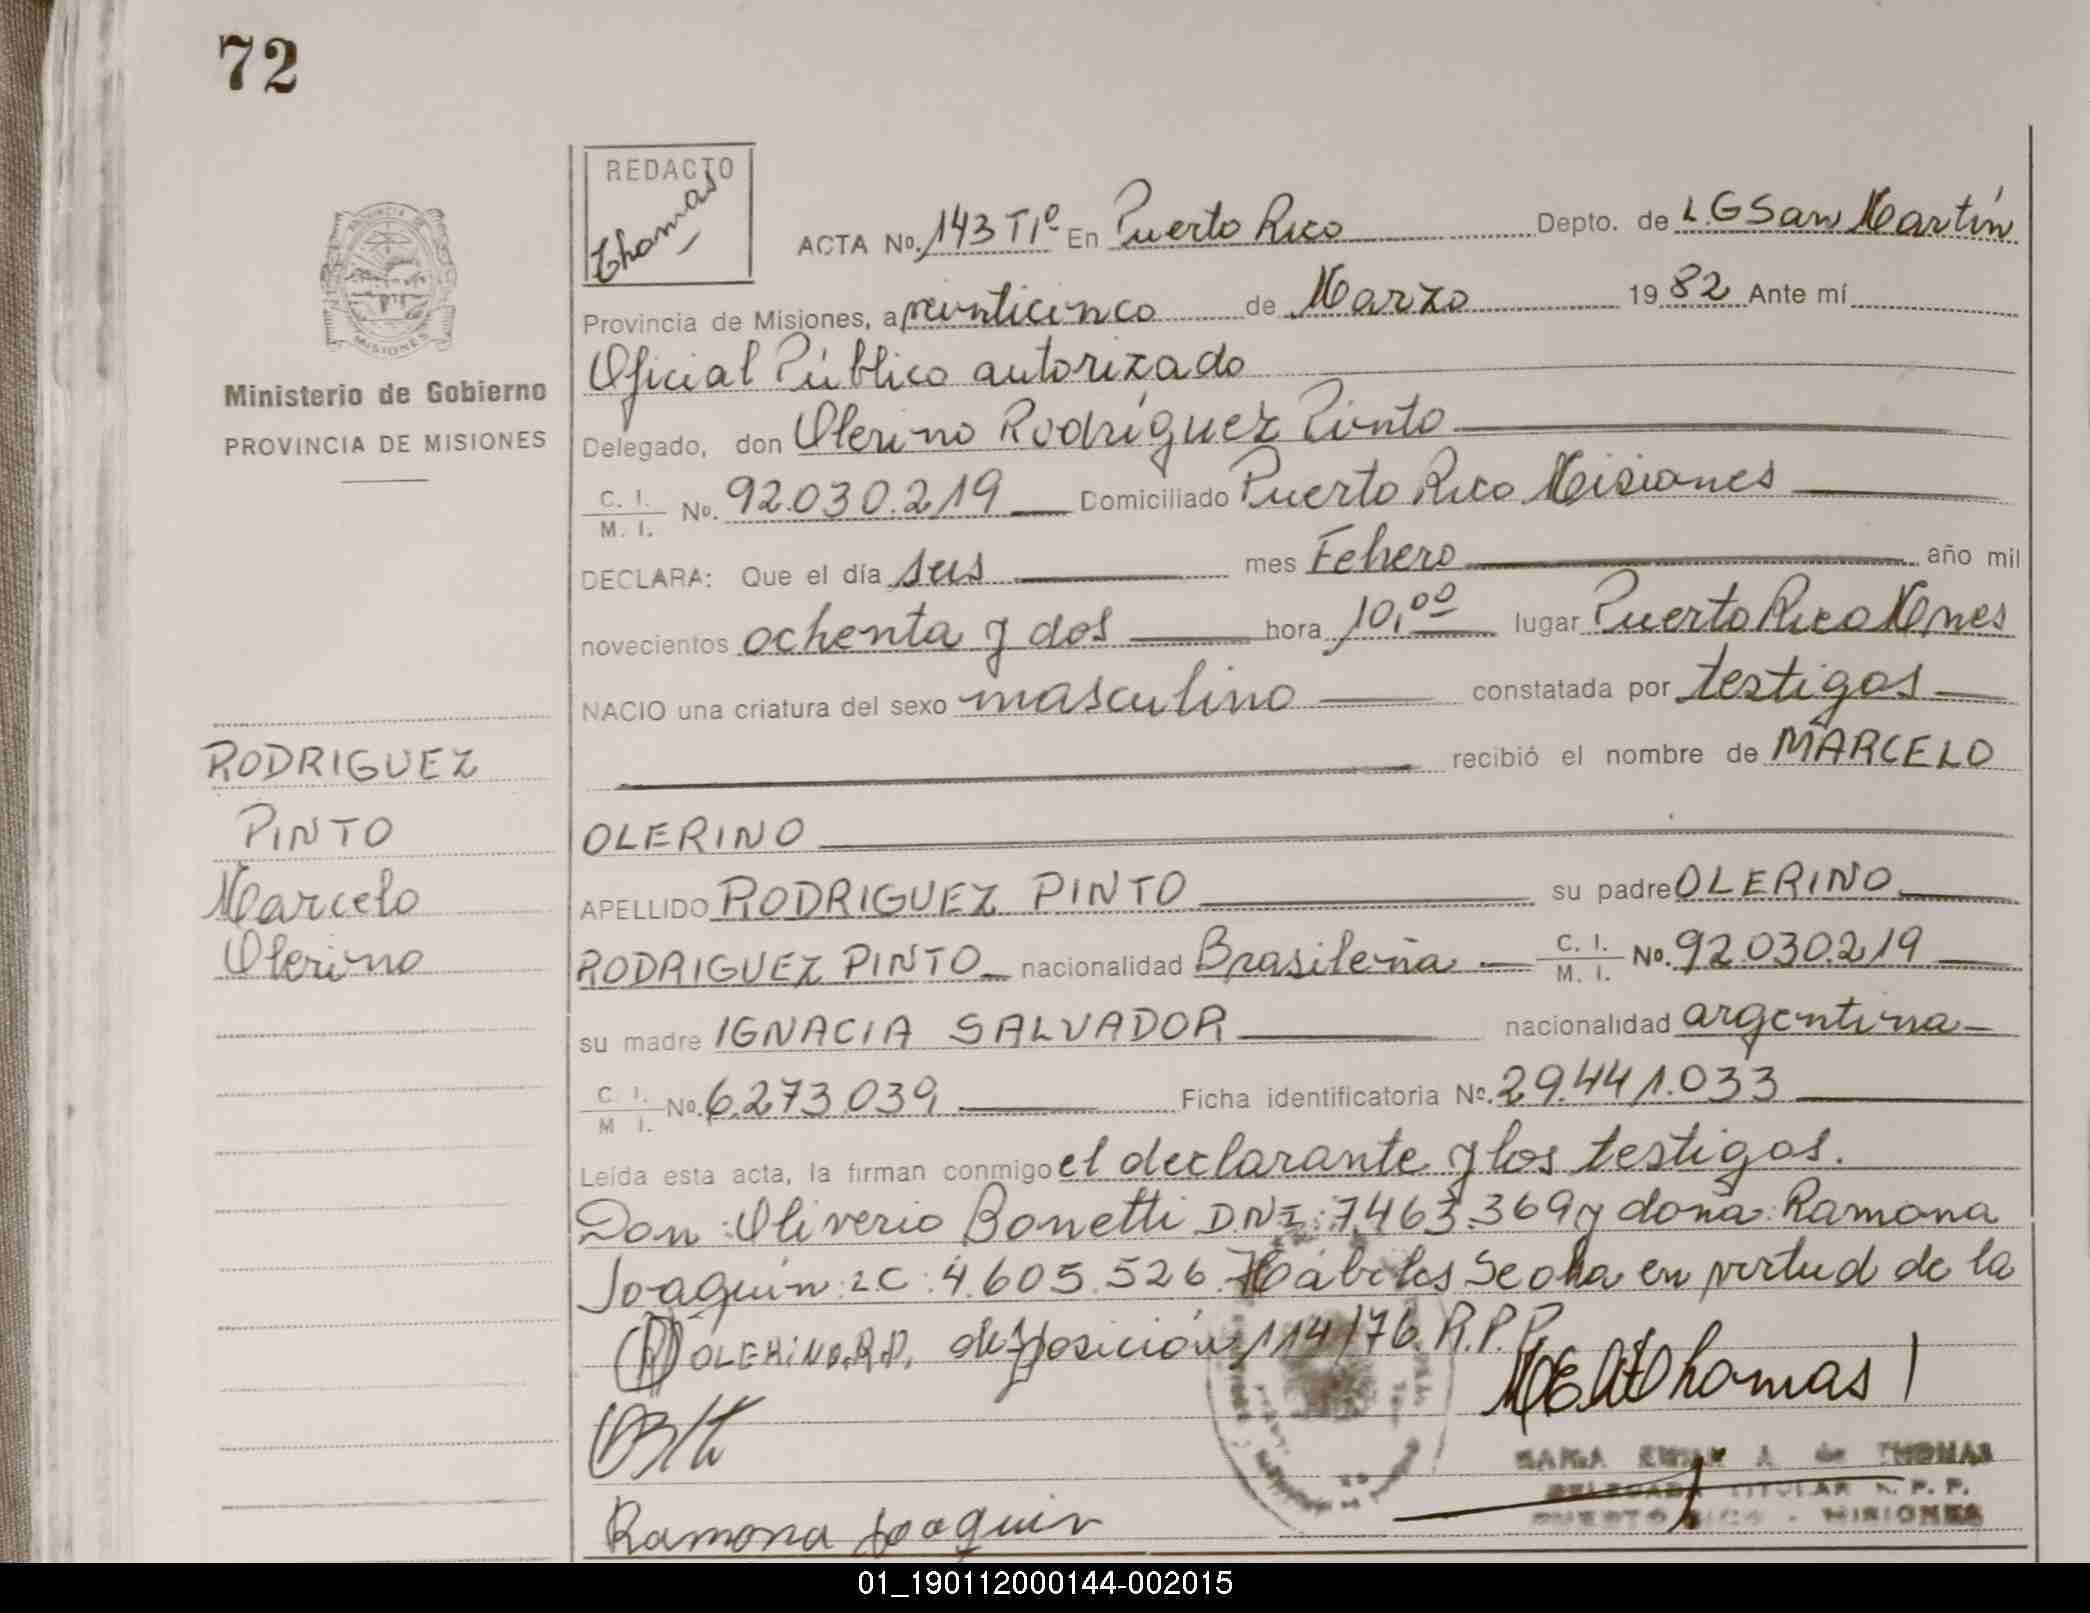 72
REDACTO
Thomas
PROVINCIA DE
MISIONES
Ministerio de Gobierno
PROVINCIA DE MISIONES
ACTA No. 143 T1º En Puerto Rico Depto. de L.G San Martín
Provincia de Misiones, a veinticinco de Marzo 1982 Ante mí
Oficial Público autorizado
Delegado, don Olerino Rodríguez Pinto
C. I. / M. I. No. 92.030.219 Domiciliado Puerto Rico Misiones
DECLARA: Que el día seis mes Febrero año mil
novecientos ochenta y dos hora 10,00 lugar Puerto Rico Mnes
NACIO una criatura del sexo masculino constatada por testigos
recibió el nombre de MARCELO
OLERINO
APELLIDO RODRIGUEZ PINTO su padre OLERINO
RODRIGUEZ PINTO nacionalidad Brasileña C. I. / M. I. No. 92.030.219
su madre IGNACIA SALVADOR nacionalidad argentina
C. I. / M I. No. 6.273.039 Ficha identificatoria No. 29.441.033
Leída esta acta, la firman conmigo el declarante y los testigos.
Don: Oliverio Bonetti D.N.I: 7.463.369 y doña: Ramona
Joaquín: L.C: 4.605.526. Hábiles Se ha en virtud de la
OLERINO.R.P. disposición 114/76 R.P.P.
Thomas
Ramona Joaquin
DE THOMAS
DELEGADA TITULAR R. P. P.
PUERTO RICO - MISIONES
RODRIGUEZ
PINTO
Marcelo
Olerino
01_190112000144-002015